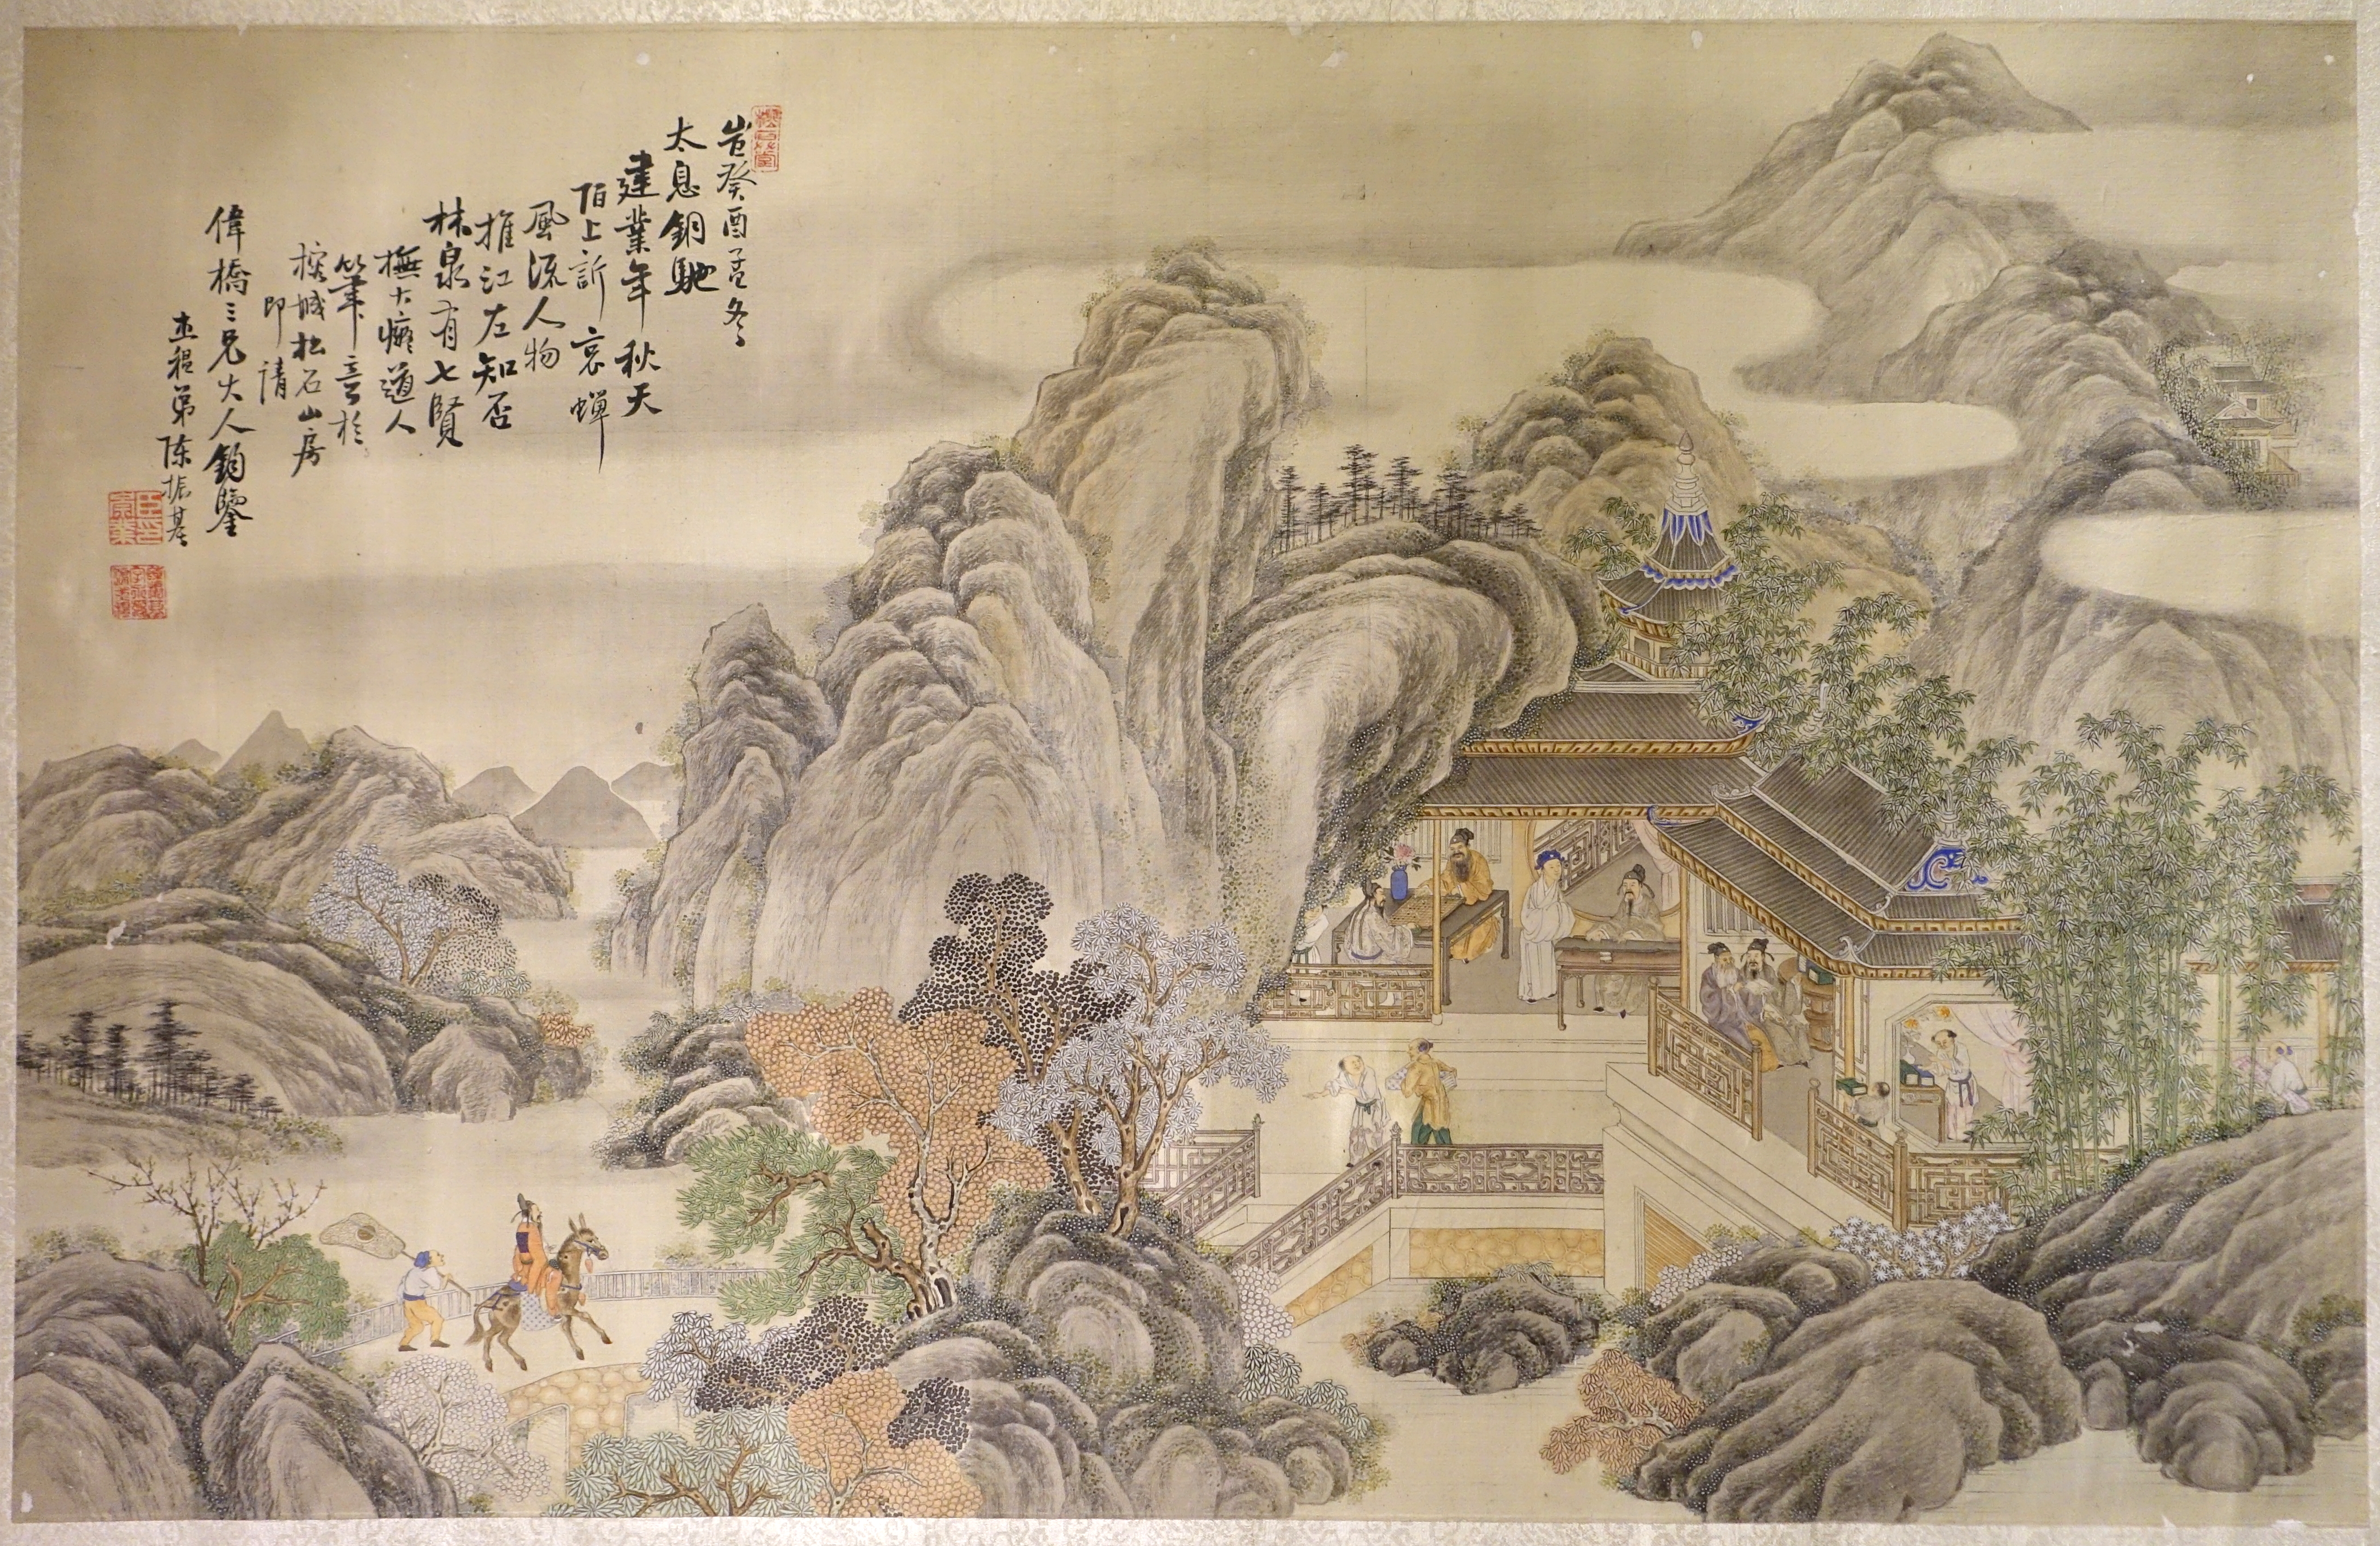 岩癸酉孟冬
太息銅駝
建業年秋天
陌上訴哀蟬
風流人物
推江左知否
林泉有七賢
撫大癡道人
筆意於
榕城松石山房
即請
偉橋三兄大人鈞鑒
陳振基